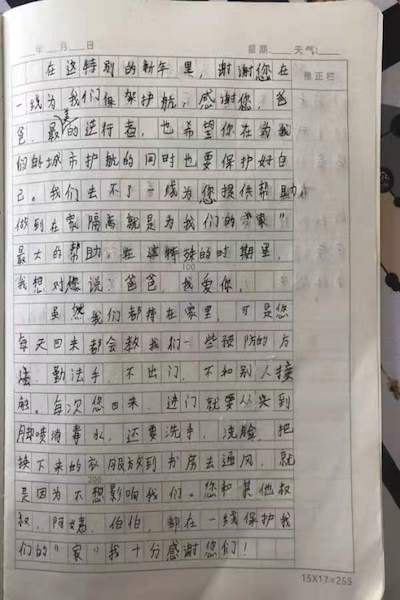 年 月 日 星期 天气
雅正栏
在这特别的新年里，谢谢您在
一线为我们保驾护航，感谢您，爸
爸，最美的逆行者，也希望你在为我
们的城市护航的同时也要保护好自
己。我们去不了一线为您提供帮助
做到在家隔离就是为我们的“家”
最大的帮助。在这特殊的时期里，
我想对您说：爸爸，我爱你。
100
虽然我们都待在家里，可是您
每天回来都会教我们一些预防的方
法，勤洗手，不出门，不和别人接
触。每次您回来，进门就要从头到
脚喷消毒水，还要洗手，洗脸，把
换下来的衣服放到书房去通风，就
200
是因为不想影响我们。您和其他叔
叔，阿姨，伯伯，都在一线保护我
们的“家”我十分感谢您们！
15X17=255